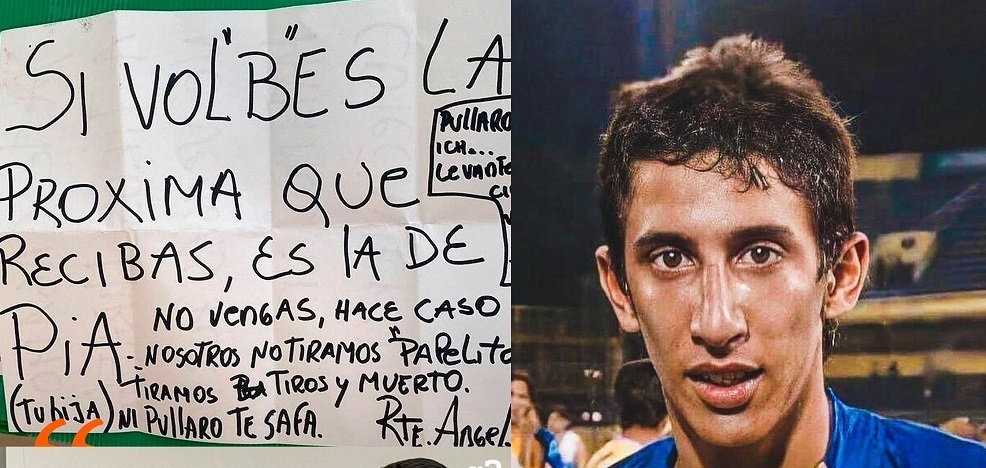 SI VOL"B"ES LA
PULLARO
ICH...
LEVANTE
PROXiMA QUe
RECIBAS, ES lA DE
PiA. NO VeNGAS, HACE CASO
NOSOTROS NO TIRAMOS "PAPELITO
TIRAMOS TIROS y MUERTO.
(Tu hija) NI PUllARO TE SAFA. RTE. ANGEL.